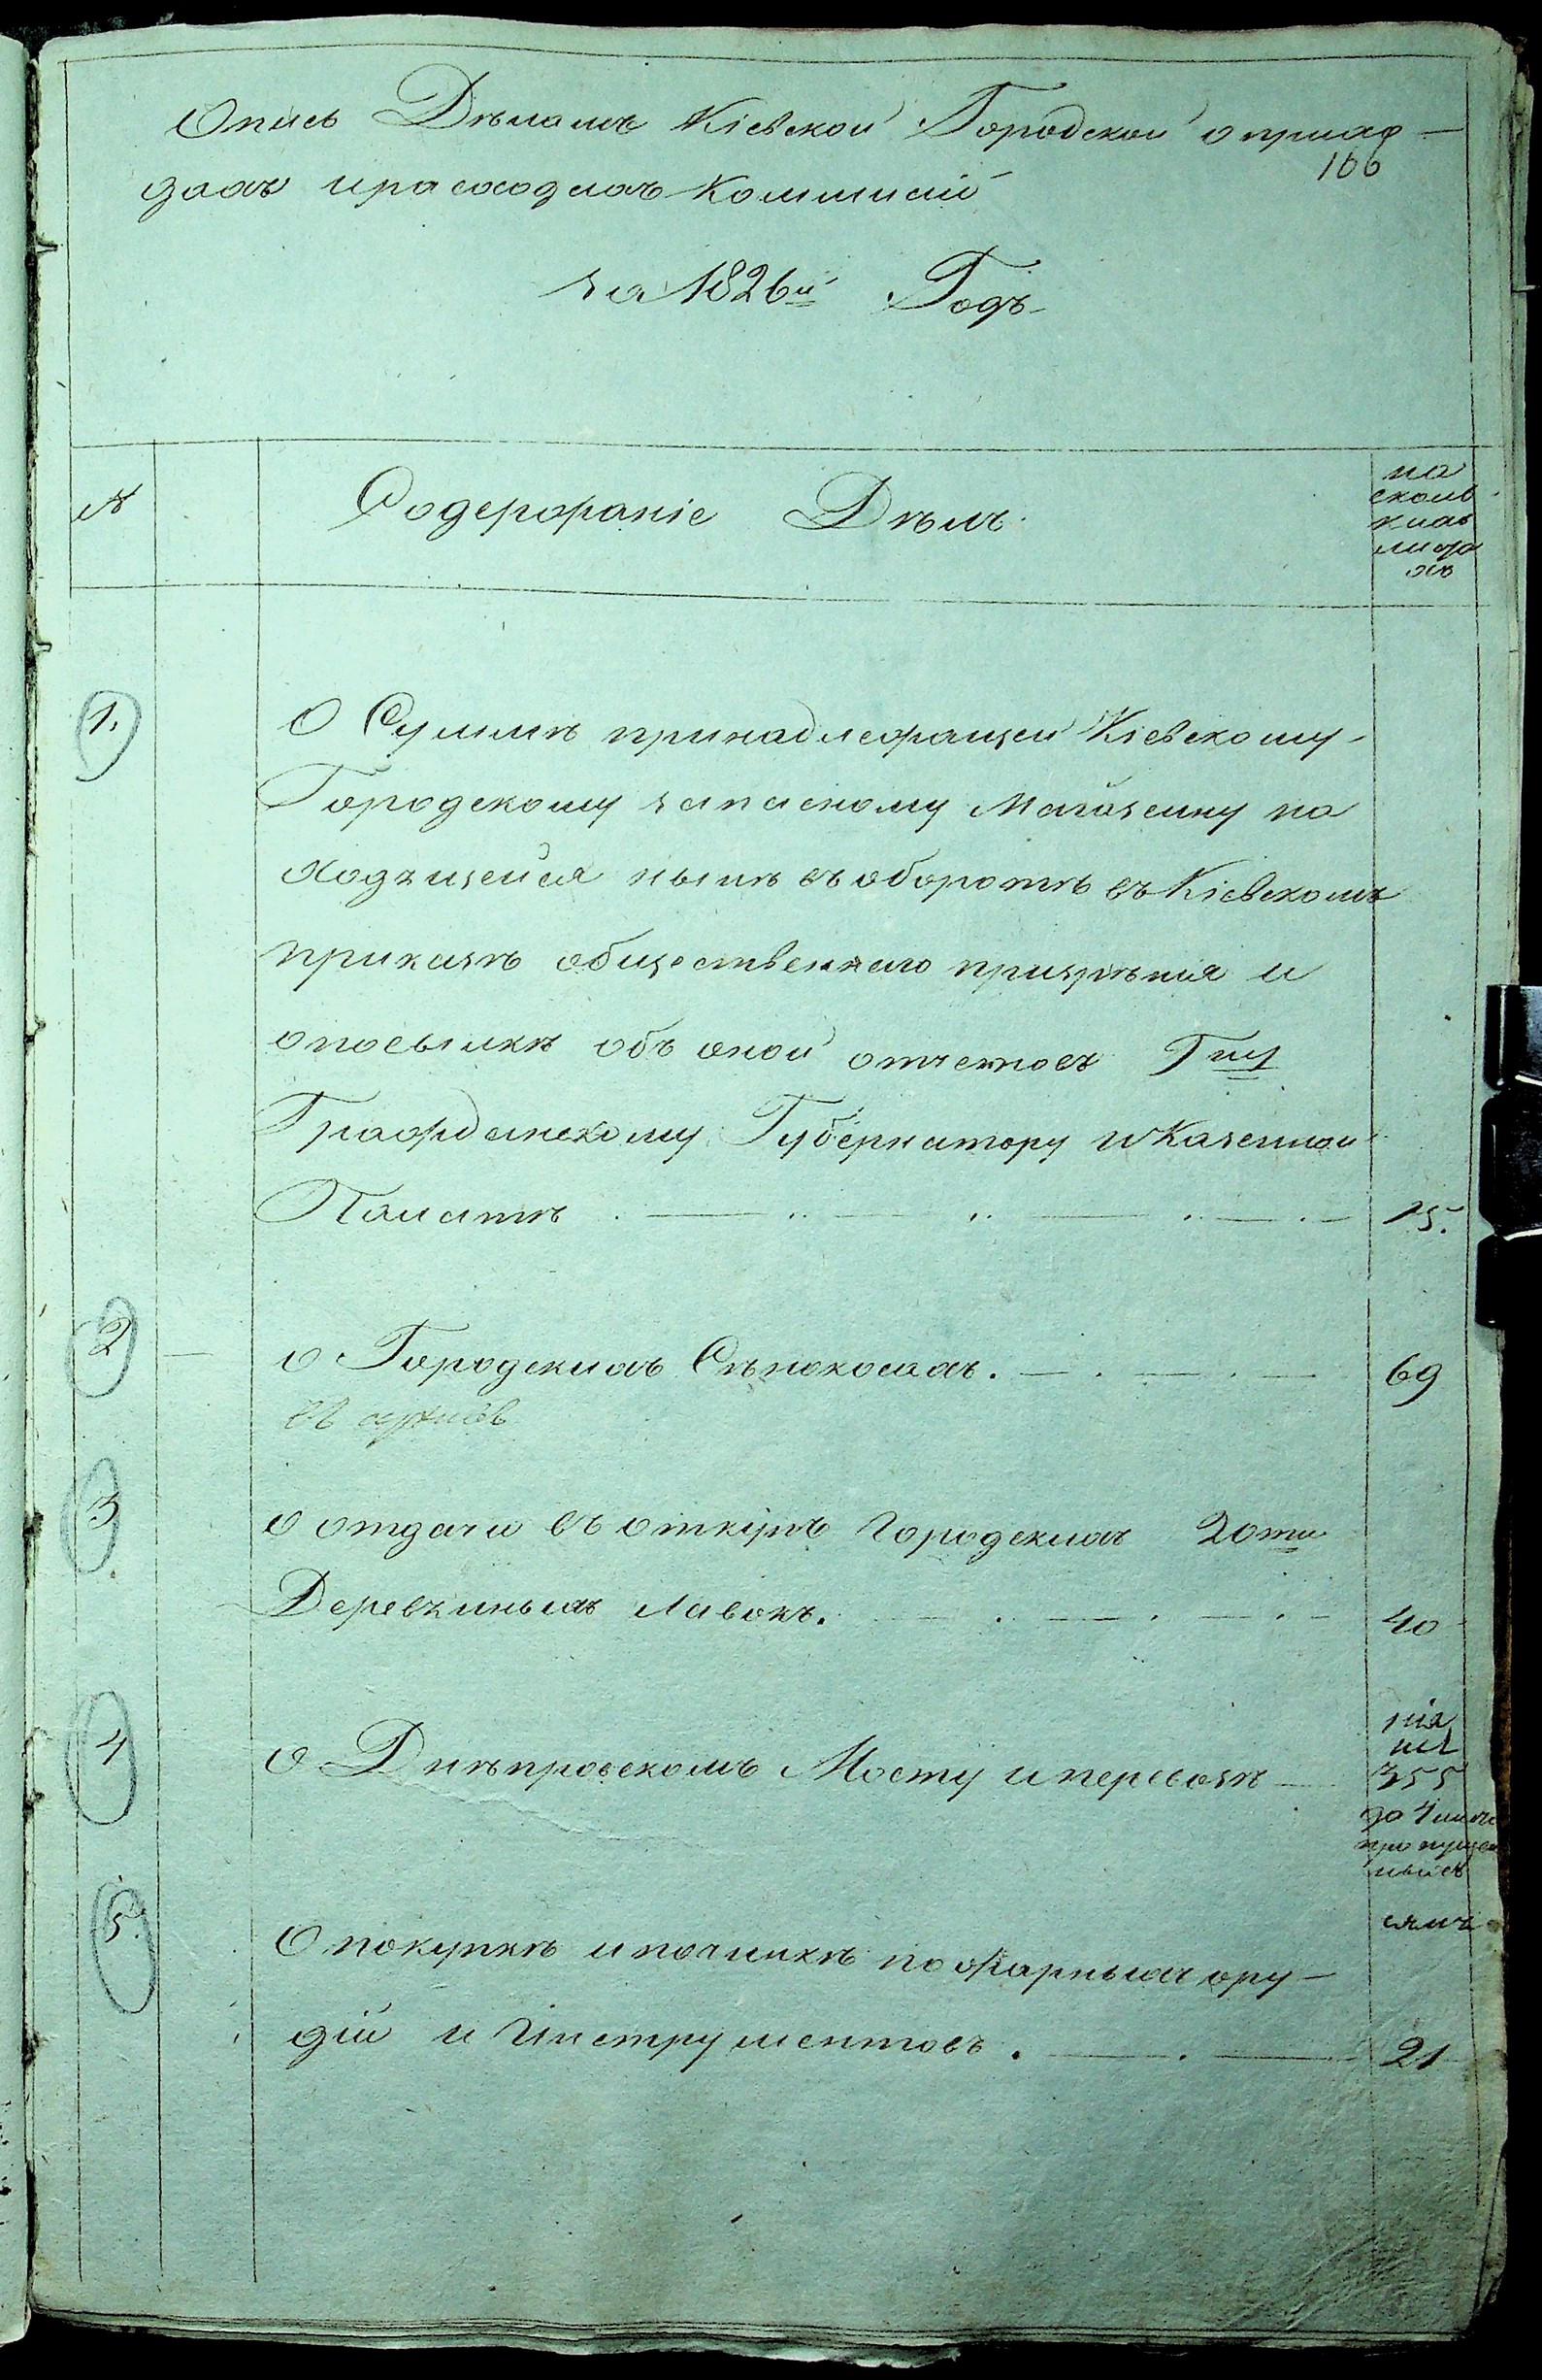 Опись Дѣламъ Кіевской Городской о прихо-
166
дахъ и расходахъ Коммисіи
за 1826й Годъ
№
Содержаніе Дѣлъ
на
сколь
кихъ
листа
хъ
1.
О Суммѣ принадлежащей Кіевскому
Городскому запасному Магазеину на
ходящейся нынѣ въ оборотѣ въ Кіевскомъ
приказѣ общественнаго призрѣнія и
о посылкѣ объ оной отчетовъ Гну
Гражданскому Губернатору и Казенной
Палатѣ
15.
2
о Городскихъ Сѣнокосахъ.
69
въ архивѣ
3
о отдачи въ откупъ Городскихъ 20ти
Деревяныхъ Лавокъ.
40
4
О Днѣпровскомъ Мосту и перевозѣ
на
355
5.
О покупкѣ и починкѣ пожарныхъ ору-
дій и Инструментовъ.
21